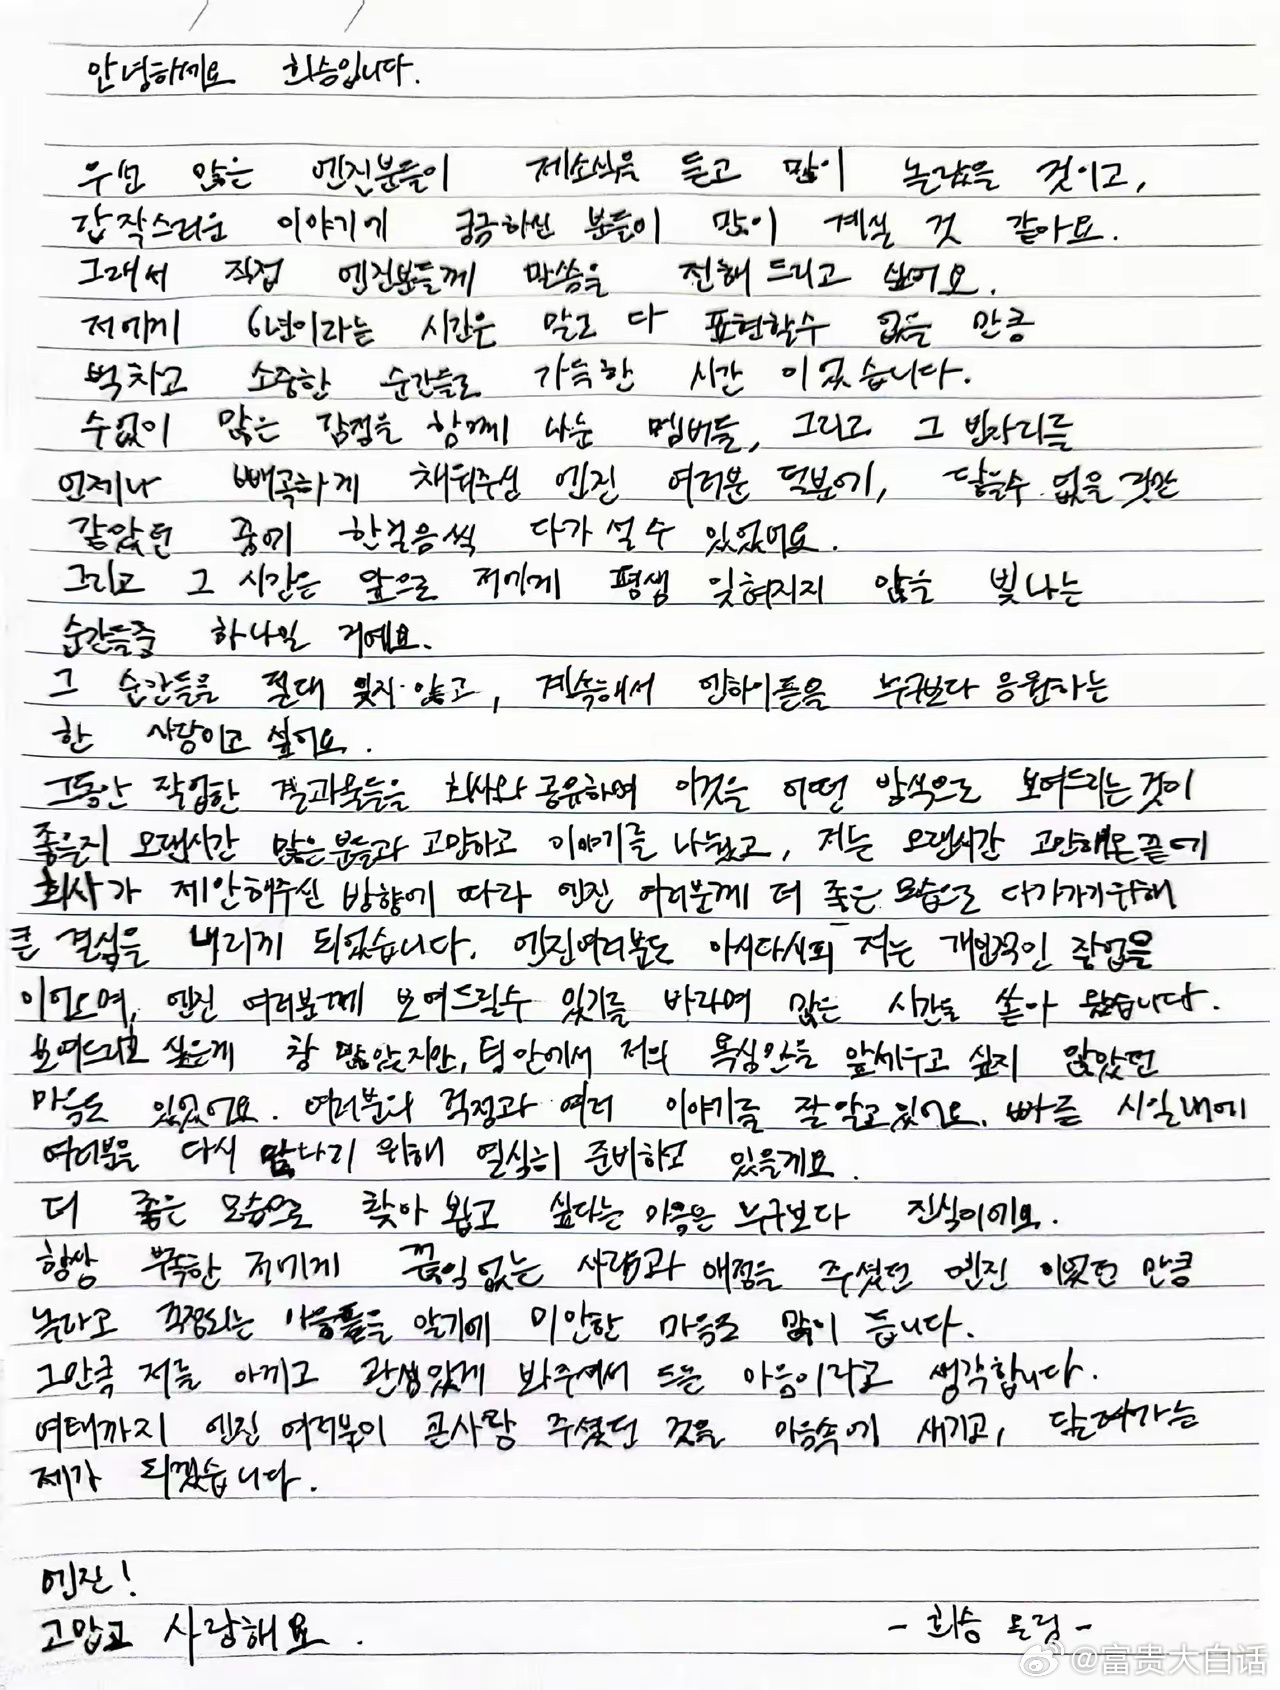 안녕하세요 희승입니다.
우선 많은 엔진분들이 제소식을 듣고 많이 놀랐을 것이고,
갑작스러운 이야기에 궁금하신 분들이 많이 계실 것 같아요.
그래서 직접 엔진분들께 말씀을 전해 드리고 싶어요.
저에게 6년이라는 시간은 말로 다 표현할수 없을 만큼
벅차고 소중한 순간들로 가득한 시간 이었습니다.
수없이 많은 감정을 함께 나눈 멤버들, 그리고 그 빈자리를
언제나 빼곡하게 채워주신 엔진 여러분 덕분에, 닿을수 없을 것만
같았던 꿈에 한걸음씩 다가 설 수 있었어요.
그리고 그 시간은 앞으로 저에게 평생 잊혀지지 않을 빛나는
순간들중 하나일 거예요.
그 순간들을 절대 잊지 않고, 계속해서 엔하이픈을 누구보다 응원하는
한 사람이고 싶어요.
그동안 작업한 결과물들을 회사와 공유하며 이것을 어떤 방식으로 보여드리는 것이
좋을지 오랜시간 많은분들과 고민하고 이야기를 나눴고, 저는 오랜시간 고민해온 끝에
회사가 제안해주신 방향에 따라 엔진 여러분께 더 좋은 모습으로 다가가기위해
큰 결심을 내리게 되었습니다. 엔진여러분도 아시다시피 저는 개인적인 작업을
이어오며, 엔진 여러분께 보여드릴수 있기를 바라며 많은 시간을 쏟아 왔습니다.
보여드리고 싶은게 참 많았지만, 팀 안에서 저의 욕심만을 앞세우고 싶지 않았던
마음도 있었어요. 여러분의 걱정과 여러 이야기를 잘 알고 있어요. 빠른 시일내에
여러분을 다시 만나기 위해 열심히 준비하고 있을게요.
더 좋은 모습으로 찾아 뵙고 싶다는 마음은 누구보다 진심이에요.
항상 부족한 저에게 끊임없는 사랑과 애정을 주셨던 엔진 이었던 만큼
놀라고 걱정되는 마음들을 알기에 미안한 마음도 많이 듭니다.
그만큼 저를 아끼고 관심있게 봐주셔서 드는 마음이라고 생각합니다.
여태까지 엔진 여러분이 큰사랑 주셨던 것을 마음속에 새기고, 달려가는
제가 되겠습니다.
엔진!
고맙고 사랑해요.
- 희승 올림 -
@富贵大白话